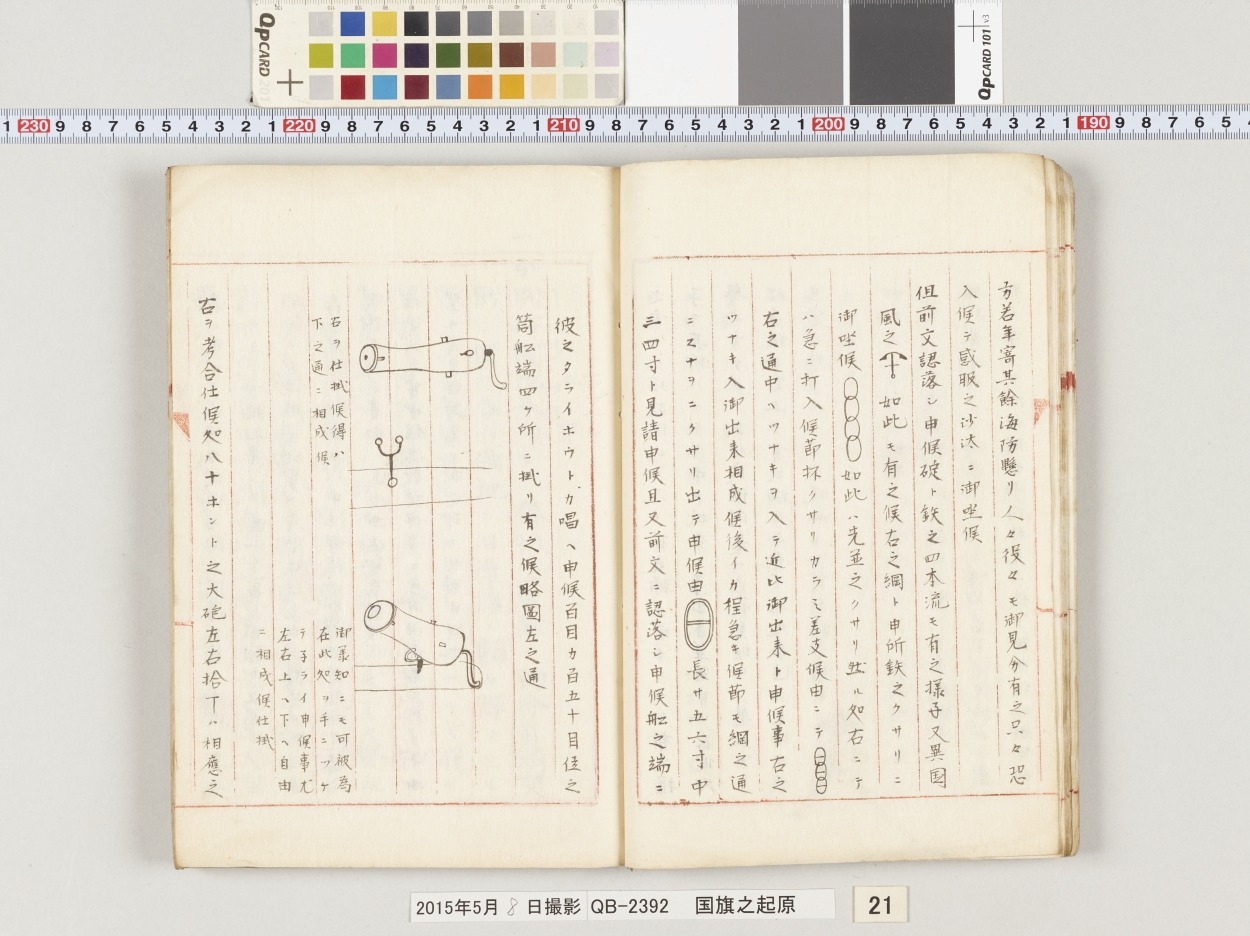 QpCARD 201
QpCARD 101 v3
1 230 9 8 7 6 5 4 3 2 1 220 9 8 7 6 5 4 3 2 1 210 9 8 7 6 5 4 3 2 1 200 9 8 7 6 5 4 3 2 1 190 9 8 7 6 5 4
方若年寄其餘海防懸リ人々役々モ御見分有之只々恐
入候テ感服之沙汰ニ御坐候
但前文認落シ申候碇ト鉄之四本流モ有之様子又異国
風之如此モ有之候右之綱ト申所鉄之クサリニ
御坐候如此ハ先並之クサリ然ル処右ニテ
ハ急ニ打入候節抔クサリカラミ差支候由ニテ
右之通中ヘツナキヲ入テ近比御出来ト申候事右之
ツナキ入御出来相成候後イカ程急キ候節モ綱之通
ニスナヲニクサリ出テ申候由長サ五六寸中
三四寸ト見請申候且又前文ニ認落シ申候船之端ニ
彼之クライホウトカ唱ヘ申候百目カ百五十目位之
筒船端四ヶ所ニ掛リ有之候略圖左之通
右ヲ仕掛候得ハ
下之通ニ相成候
御承知ニモ可被為
在此処ヲ手ニツケ
テ子ライ申候事尤
左右上ヘ下ヘ自由
ニ相成候仕掛
右ヲ考合仕候処八十ホントノ大砲左右拾丁ハ相應之
2015年5月8日撮影 QB-2392 国旗之起原
21